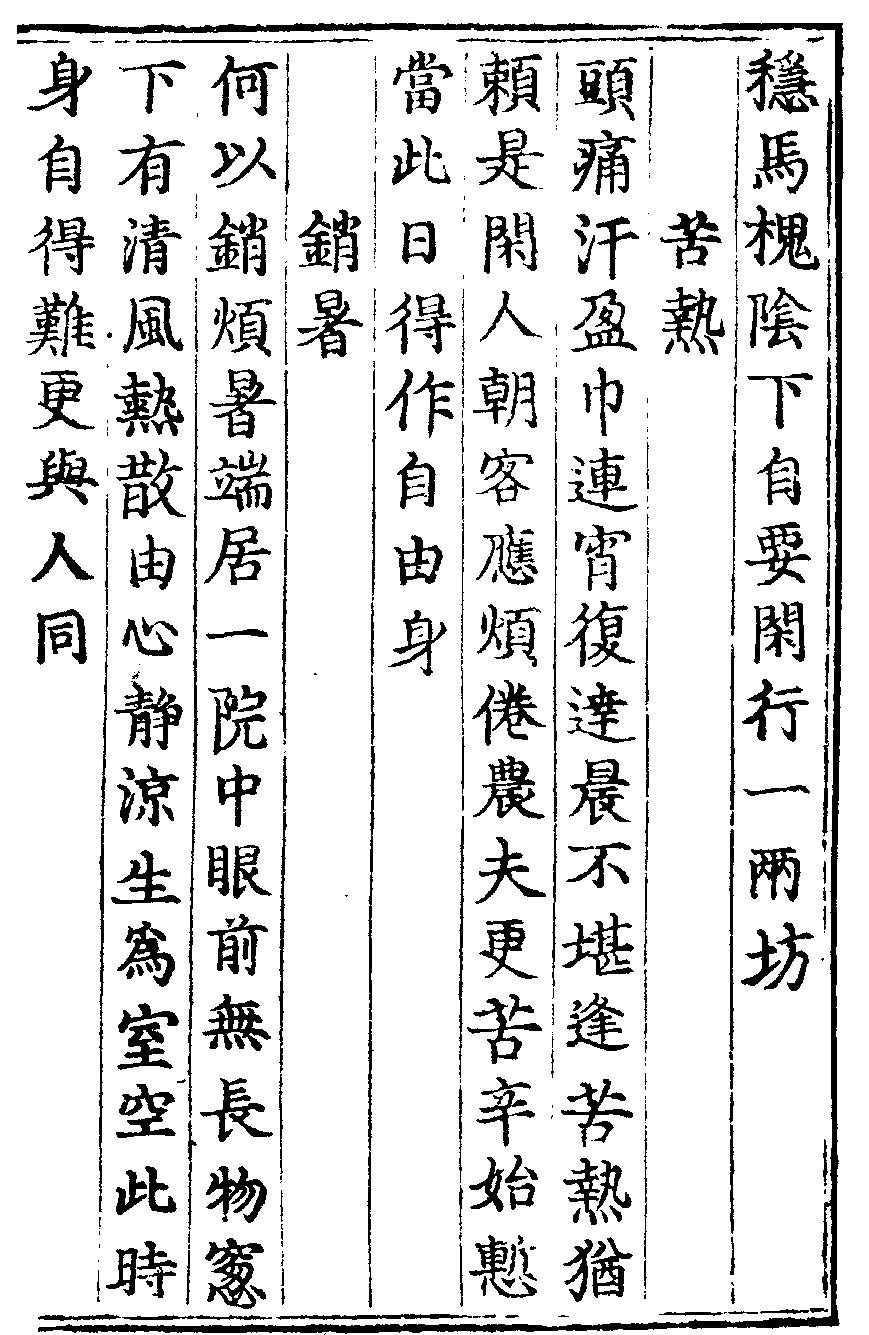 穩馬槐陰下自要閑行一兩坊
苦熱
頭痛汗盈巾連宵復達晨不堪逢苦熱猶
賴是閑人朝客應煩倦農夫更苦辛始慙
當此日得作自由身
銷暑
何以銷煩暑端居一院中眼前無長物窻
下有清風熱散由心静涼生為室空此時
身自得難更與人同